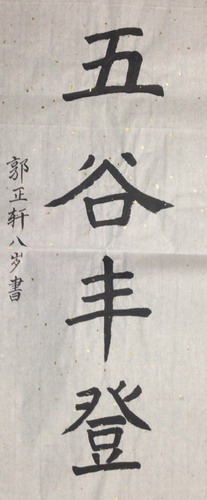 五谷丰登
郭正轩八岁書